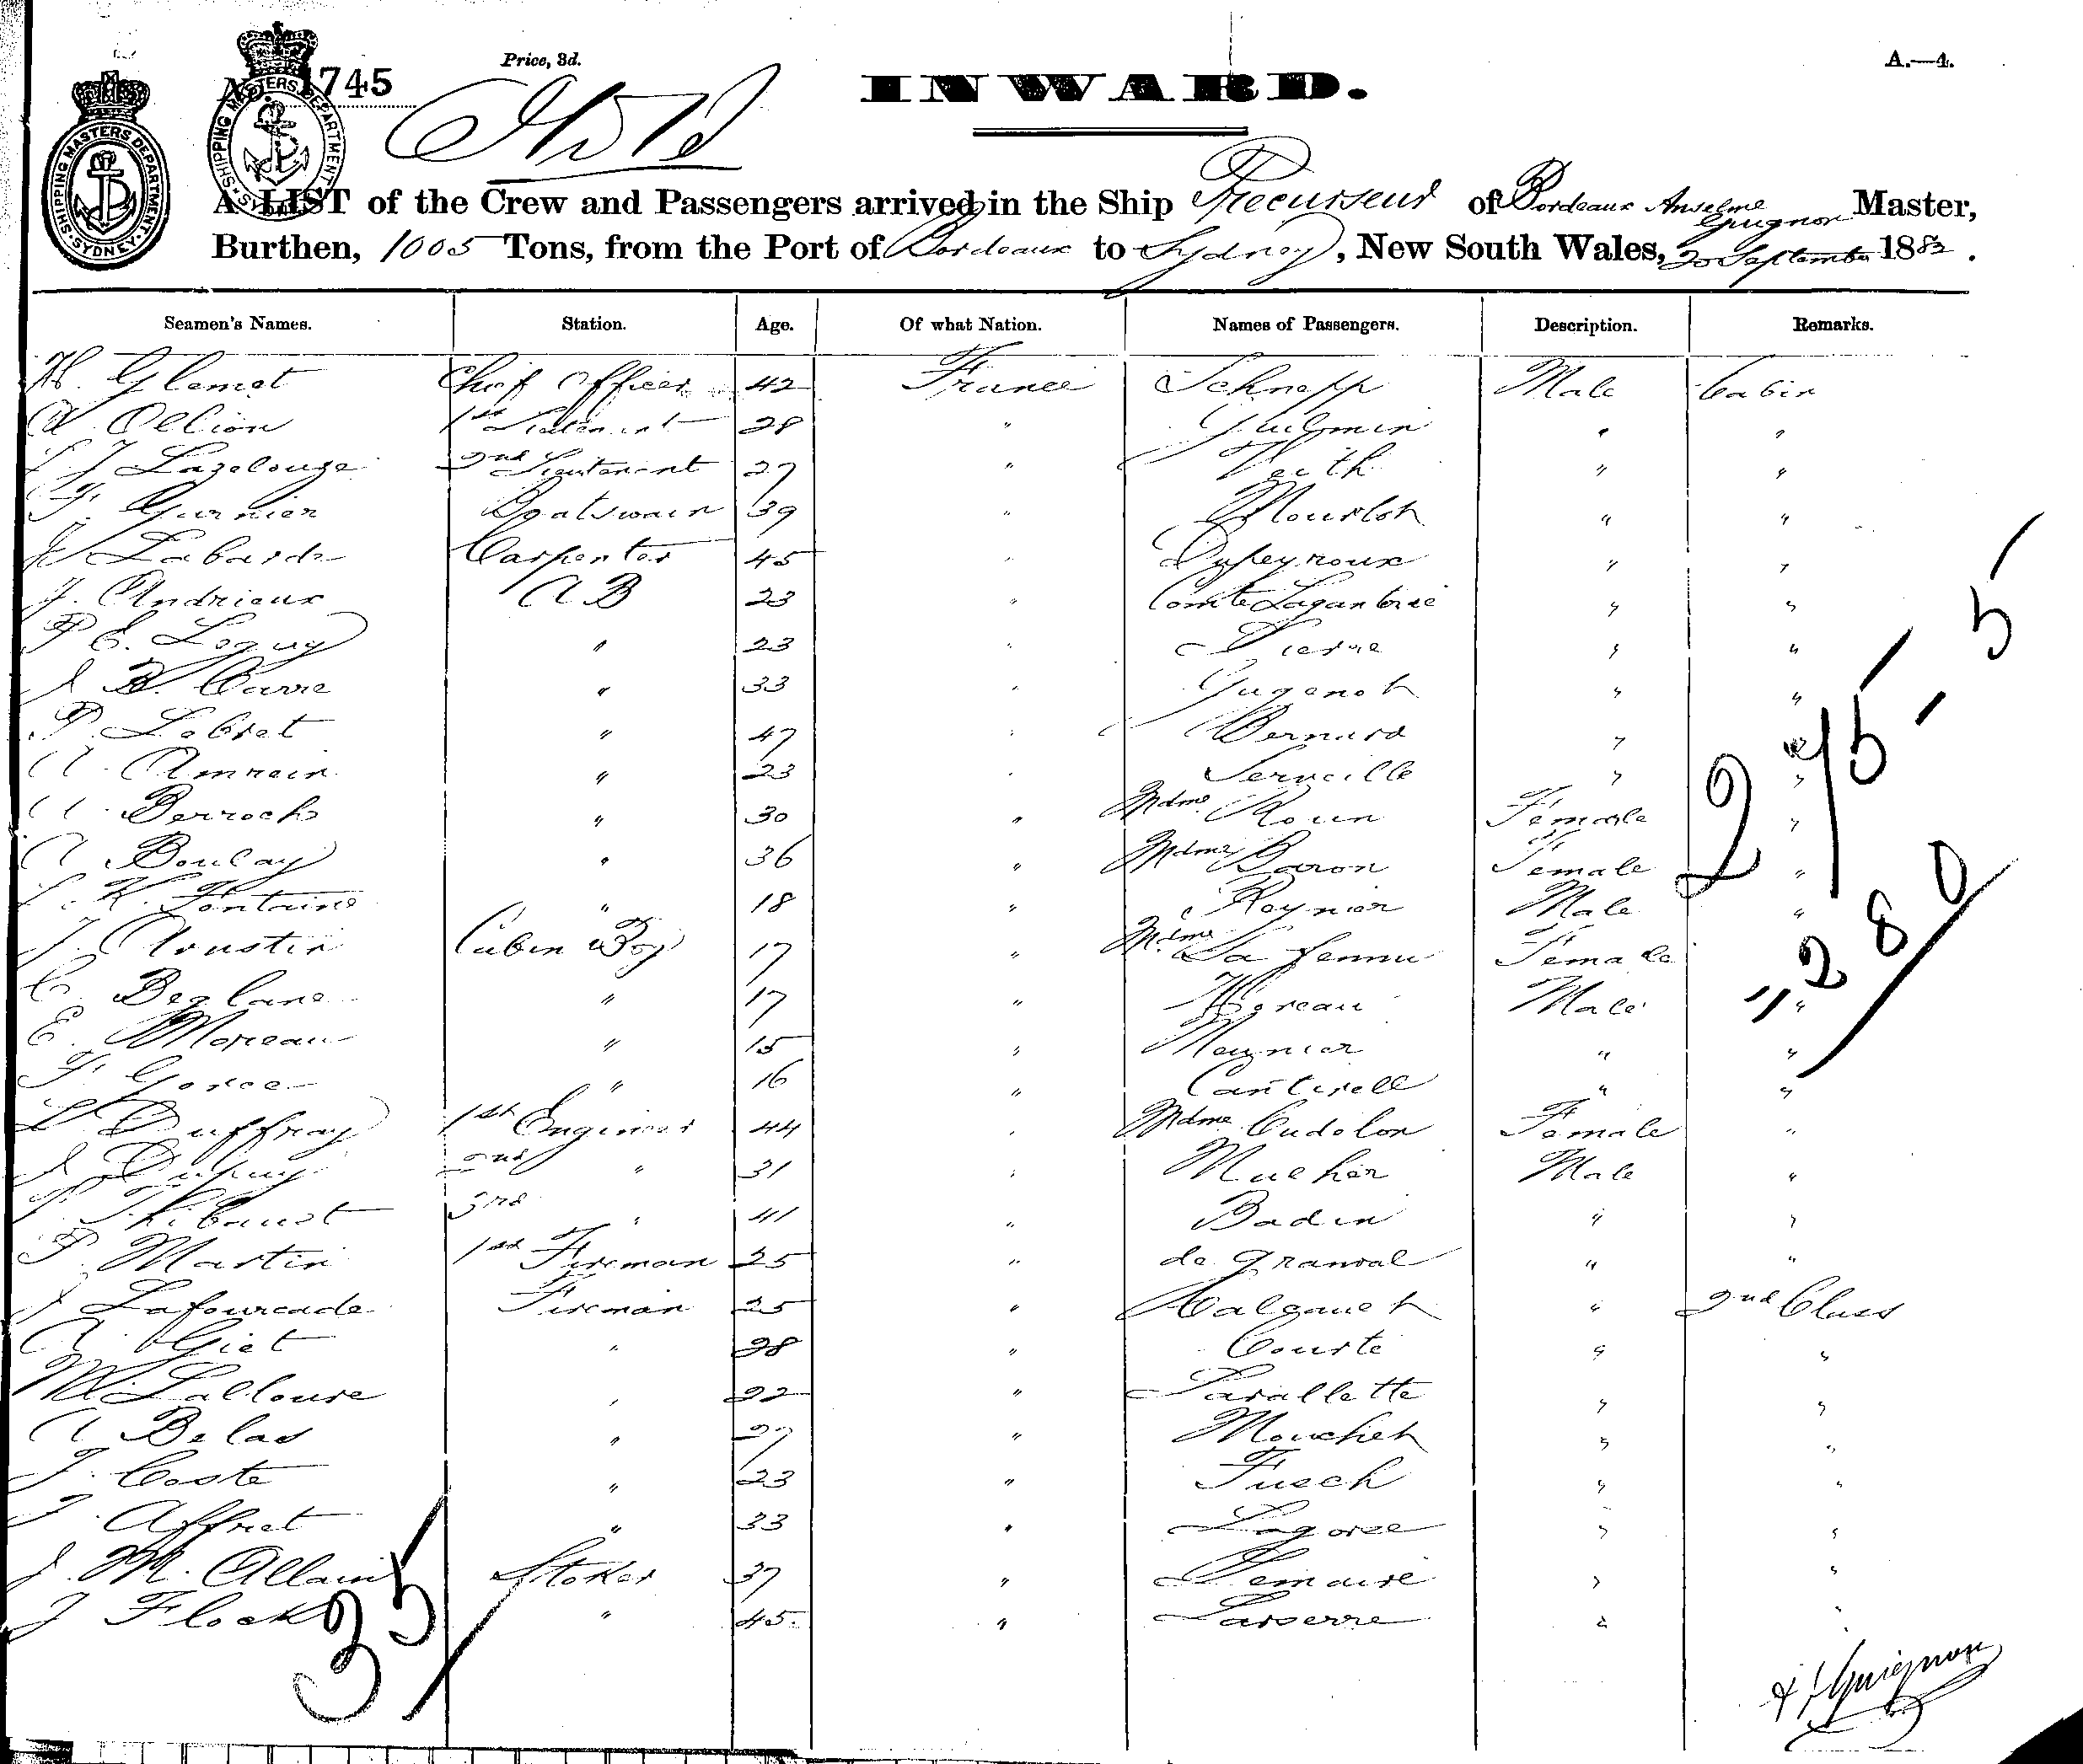 Price, 3d.
A.—4.
1745
INWARD.
SHIPPING MASTERS DEPARTMENT SYDNEY
SHIPPING MASTERS DEPARTMENT SYDNEY
A LIST of the Crew and Passengers arrived in the Ship Precurseur of Bordeaux Anselme Guignon Master,
Burthen, 1005 Tons, from the Port of Bordeaux to Sydney, New South Wales, 20 September 1882.
Seamen's Names. Station. Age. Of what Nation. Names of Passengers. Description. Remarks.
H. Glemet Chief Officer 42 France Schnepp Male Cabin
A Ollion 1st Lieutenant 28 " " "
2nd Lieutenant 27 " Veith " "
F. Gurnier Boatswain 39 " Mourlot " "
Labarde Carpenter 45 " Dupeyroux " "
J. Andrieux AB 23 " Comte " "
P E. Leguy " 23 " Pierre " "
J B. Carre " 33 " Gugenot " "
P. Lebret " 47 " Bernard " "
A. Amrein " 23 " Serveille " "
A. Berroch " 30 " Mdme Roun Female "
A Boulay " 36 " Mdme Baron Female "
Fontaine " 18 " Reynier Male "
J. Aroustin Cabin Boy 17 " Mdme La femme Female
C. Beglane " 17 " Moreau Male "
E. Moreau " 15 " Meynier " "
F. Gorce " 16 " Cantirell " "
Duffray 1st Engineer 44 " Mdme Cudelon Female "
J Dupuy 2nd " 31 " Mueher Male "
Thibaust 3rd " 41 " Badin " "
P. Martin 1st Fireman 25 " de Granval " "
J Lafourcade Fireman 25 " Calganet " 2nd Class
A. Giet " 28 " Courte " "
M. Lallouse " 22 " Lavallette " "
A Belas " 27 " Mouchet " "
J. Coste " 23 " Fusch " "
J. Affret " 33 " Lagorce " "
J. M. Allain Stoker 37 " Lemaire " "
J Flock " 45 " Lasserre " "
35
5
280
A Guignon